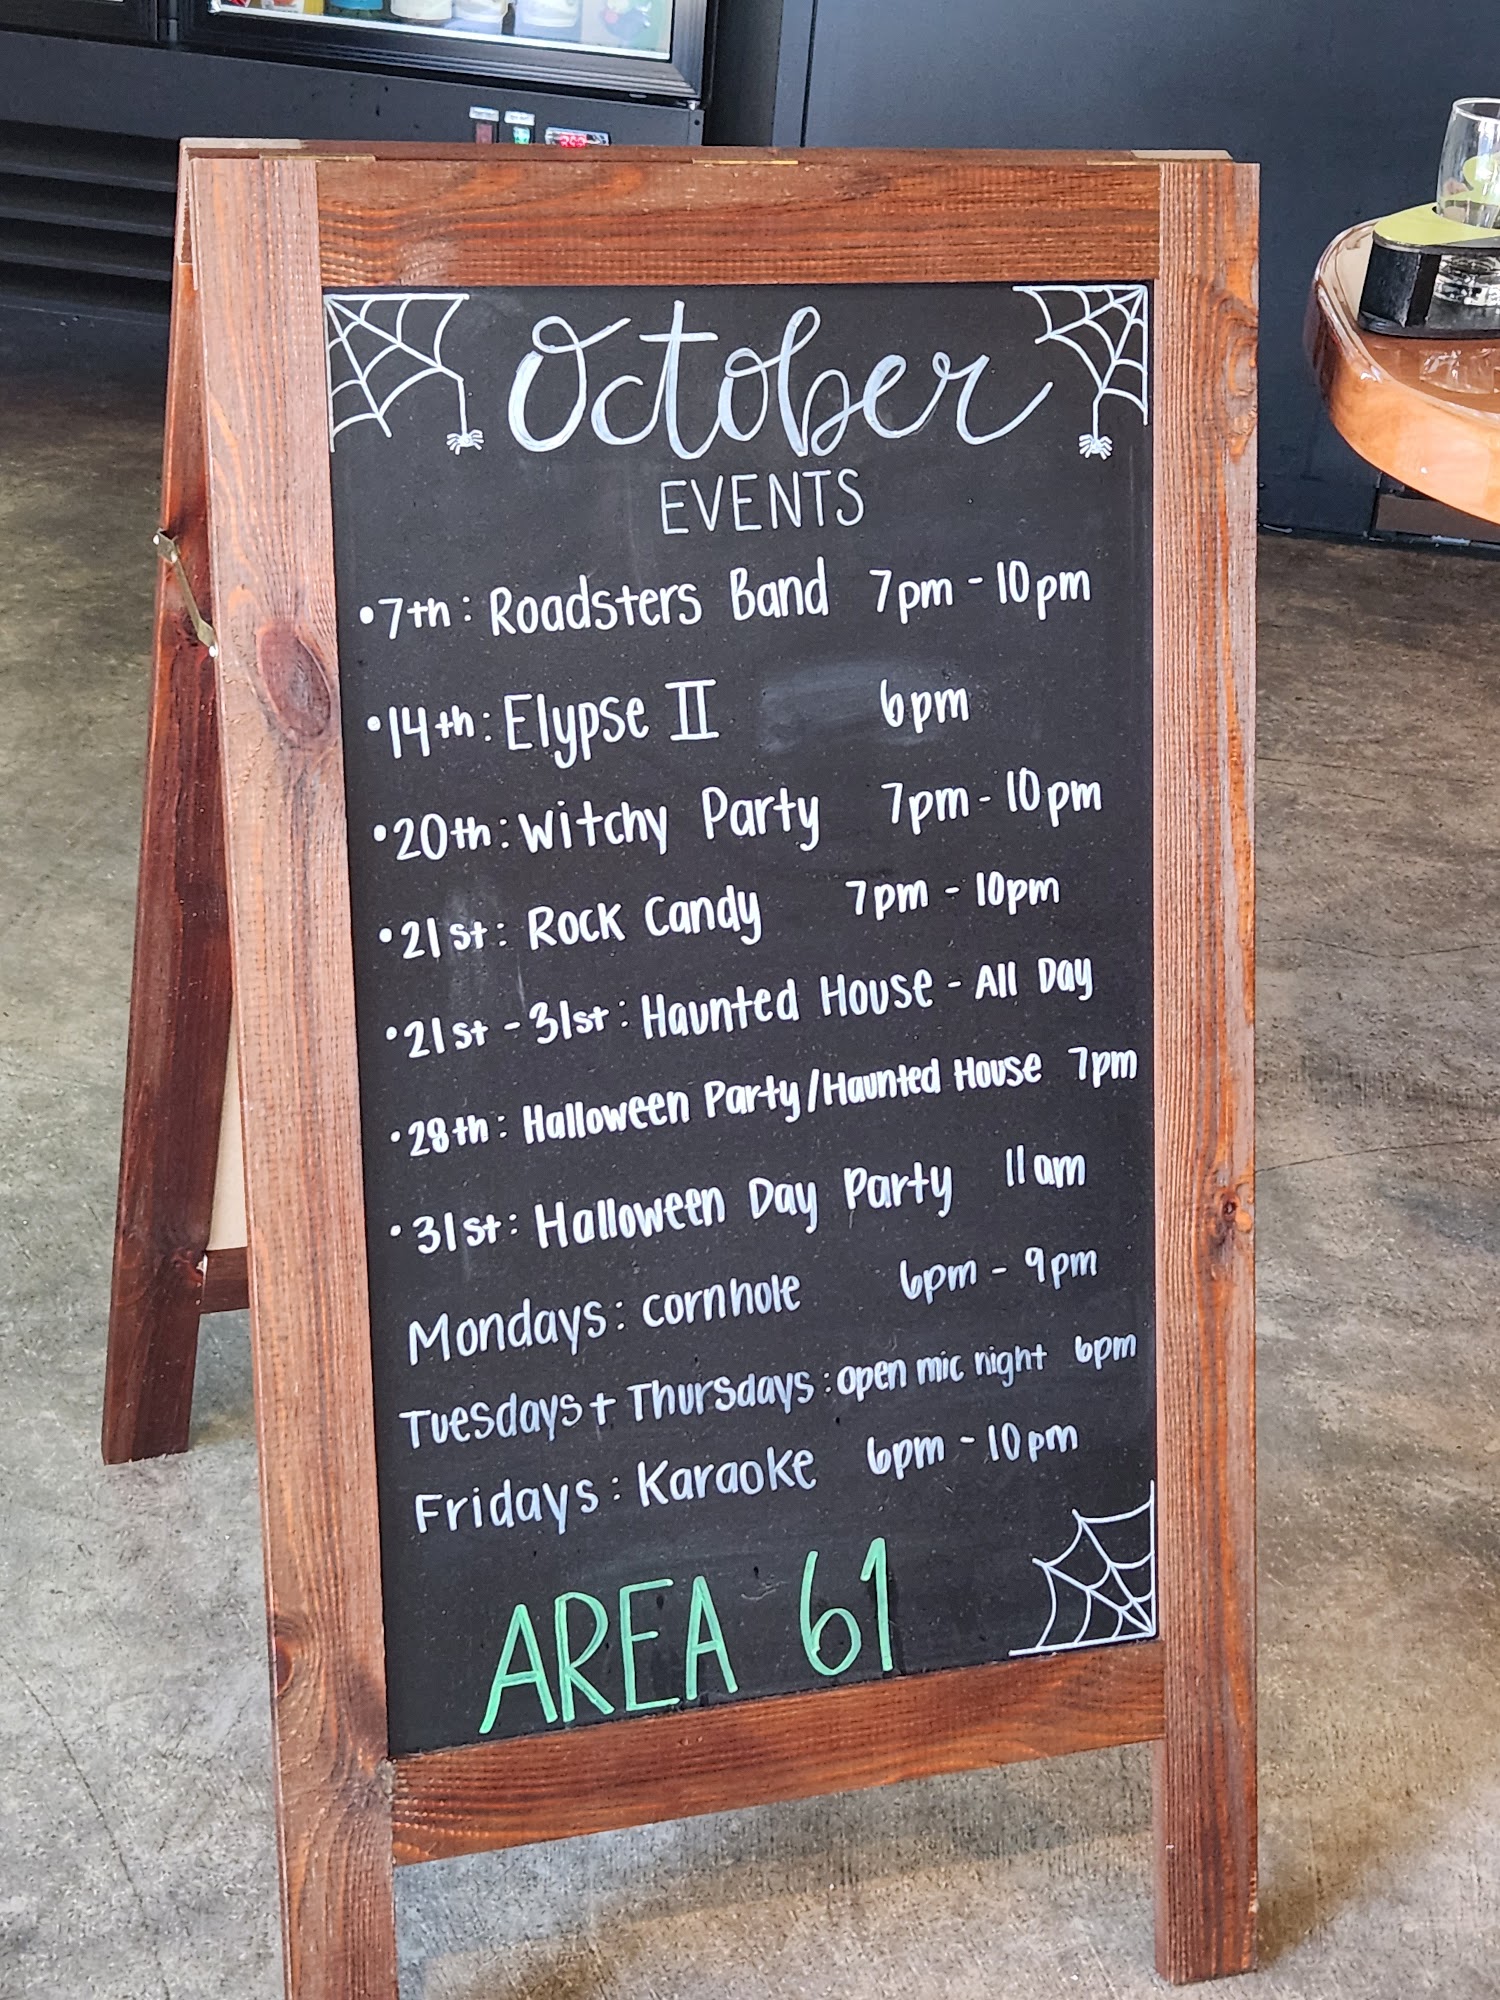 October
EVENTS
•7th: Roadsters Band 7pm - 10pm
•14th: Elypse II 6pm
•20th: Witchy Party 7pm - 10pm
•21st: Rock Candy 7pm - 10pm
•21st - 31st: Haunted House - All Day
•28th: Halloween Party/Haunted House 7pm
•31st: Halloween Day Party 11am
Mondays: cornhole 6pm - 9pm
Tuesdays + Thursdays: open mic night 6pm
Fridays: Karaoke 6pm - 10pm
AREA 61